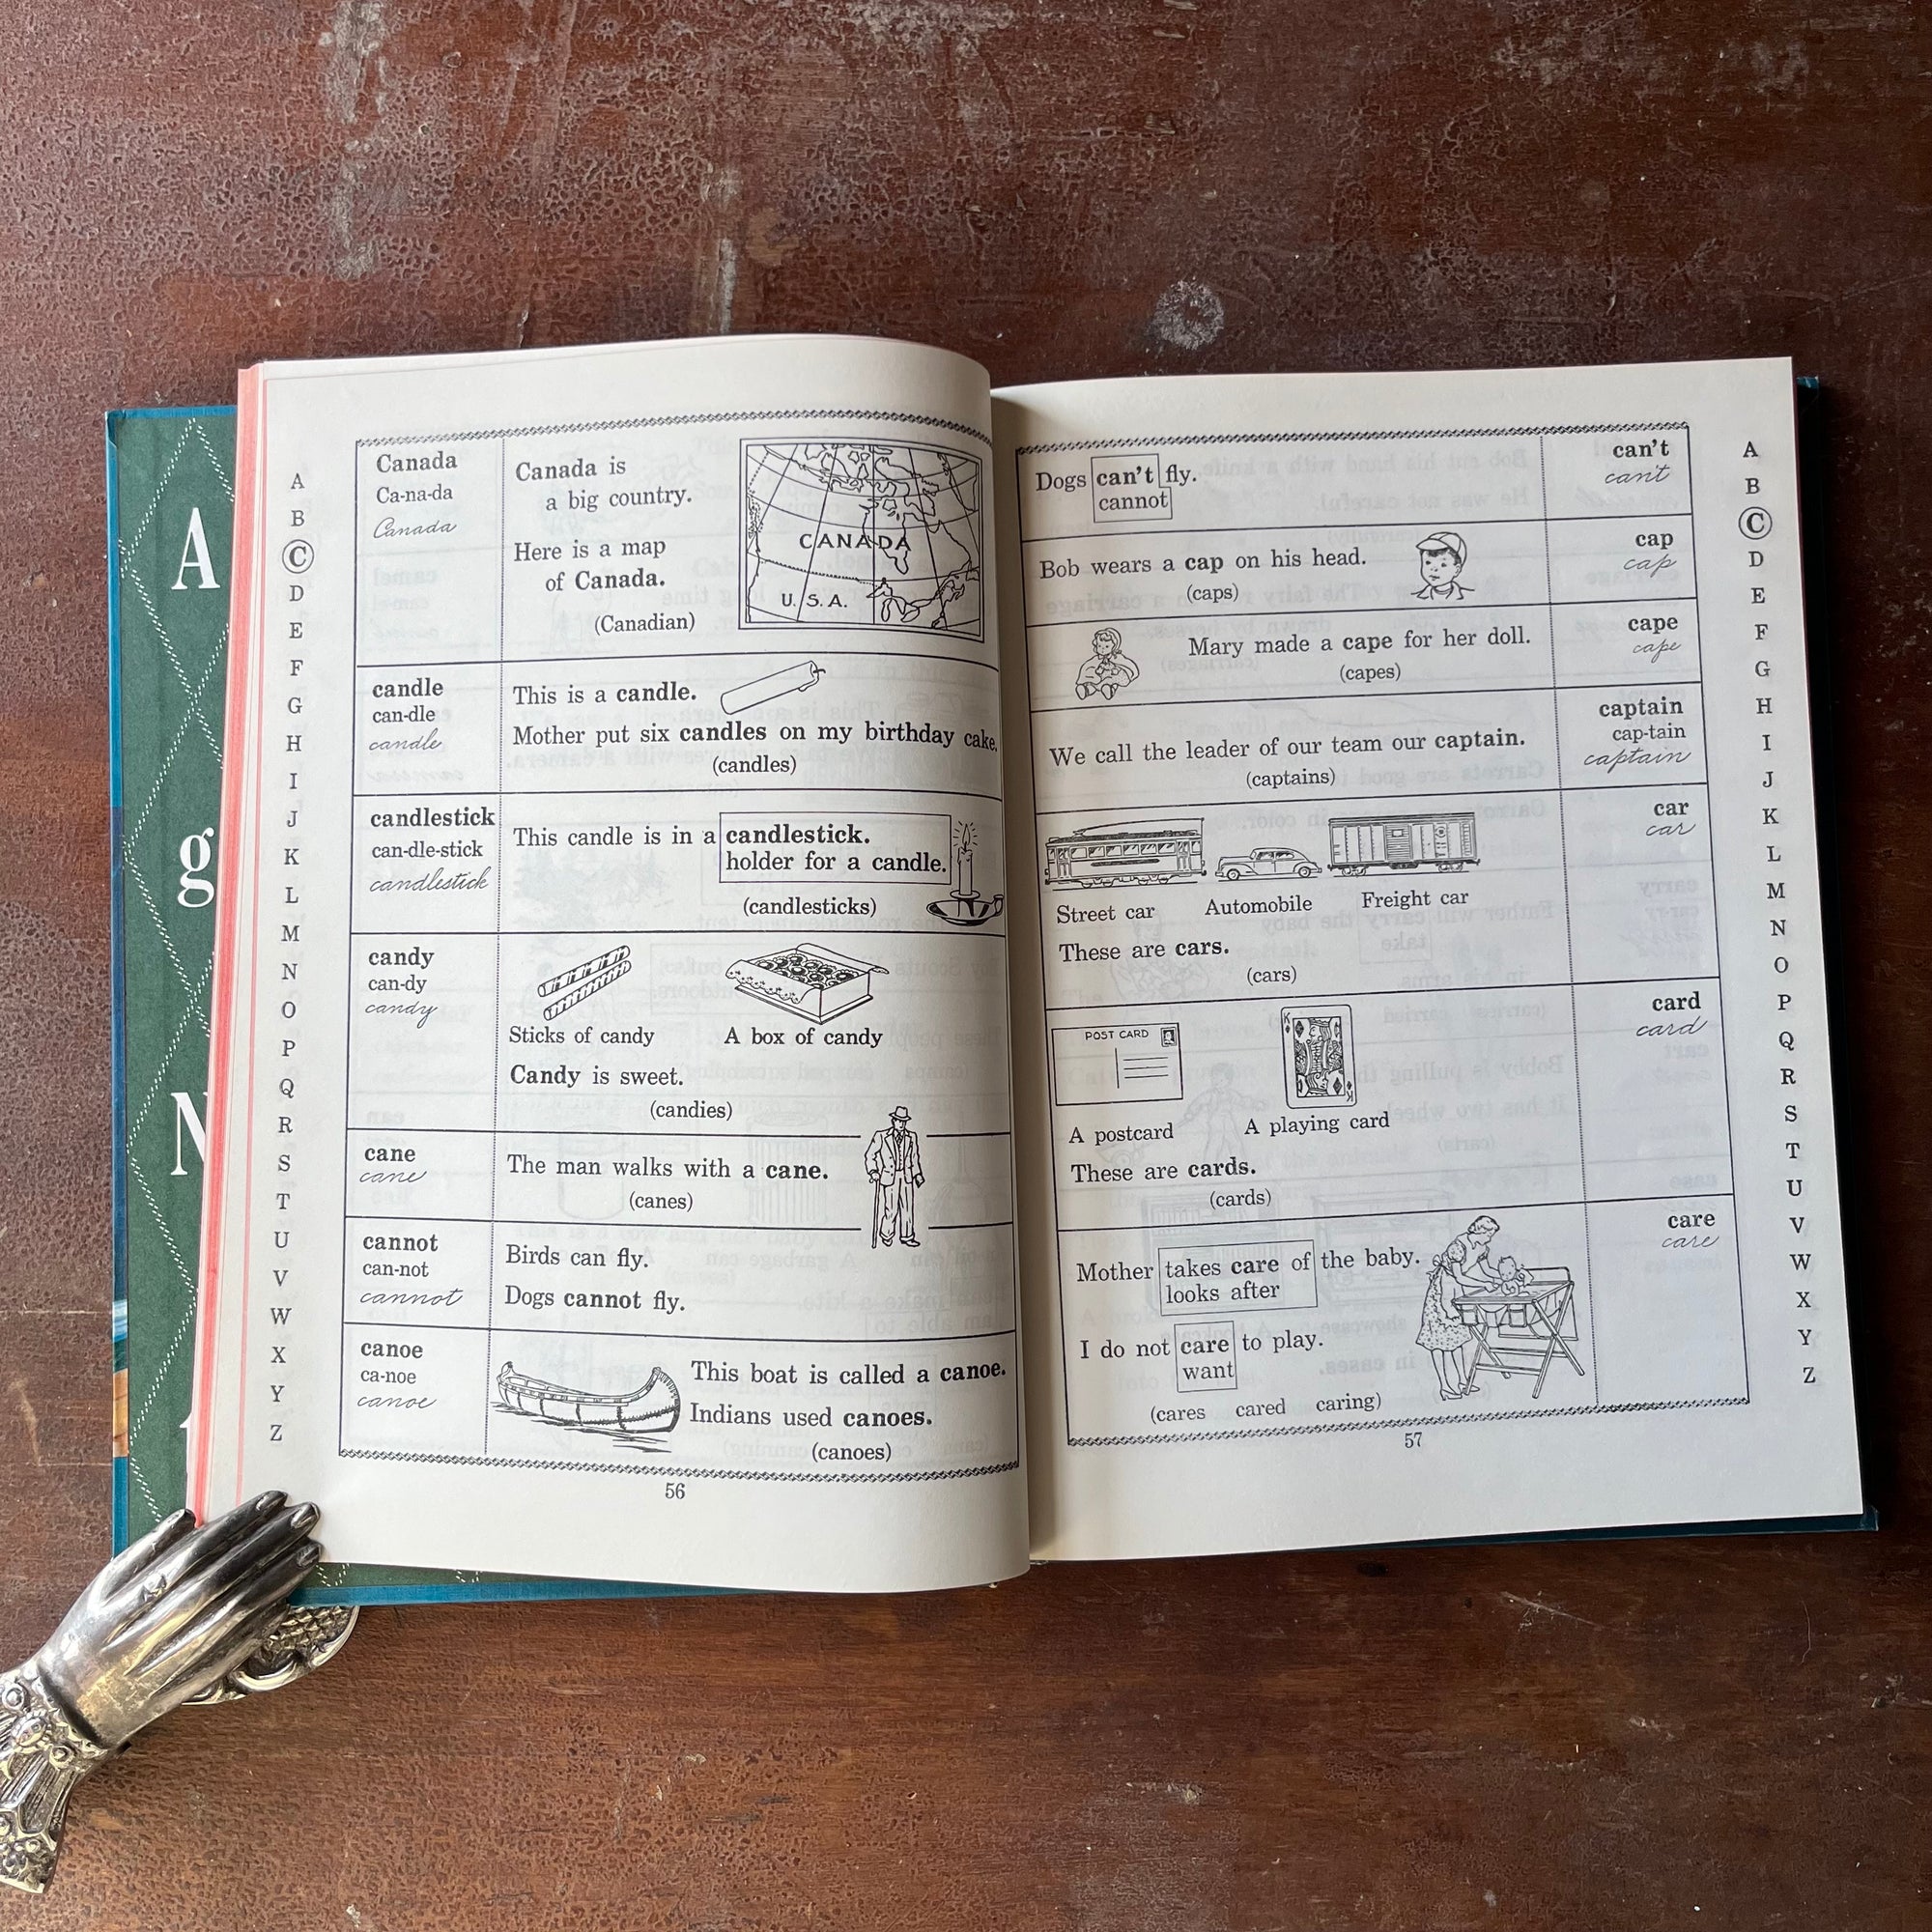 A
g
N
A
B
C
D
E
F
G
H
I
J
K
L
M
N
O
P
Q
R
S
T
U
V
W
X
Y
Z
Canada
Ca-na-da
Canada
Canada is
a big country.
Here is a map
of Canada.
(Canadian)
CANADA
U.S.A.
candle
can-dle
candle
This is a candle.
Mother put six candles on my birthday cake.
(candles)
candlestick
can-dle-stick
candlestick
This candle is in a candlestick.
holder for a candle.
(candlesticks)
candy
can-dy
candy
Sticks of candy A box of candy
Candy is sweet.
(candies)
cane
cane
The man walks with a cane.
(canes)
cannot
can-not
cannot
Birds can fly.
Dogs cannot fly.
canoe
ca-noe
canoe
This boat is called a canoe.
Indians used canoes.
(canoes)
56
Dogs can't fly.
cannot
can't
can't
Bob wears a cap on his head.
(caps)
cap
cap
Mary made a cape for her doll.
(capes)
cape
cape
We call the leader of our team our captain.
(captains)
captain
cap-tain
captain
Street car Automobile Freight car
These are cars.
(cars)
car
car
POST CARD
K
K
A postcard A playing card
These are cards.
(cards)
card
card
Mother takes care of the baby.
looks after
I do not care to play.
want
(cares cared caring)
care
care
57
A
B
C
D
E
F
G
H
I
J
K
L
M
N
O
P
Q
R
S
T
U
V
W
X
Y
Z